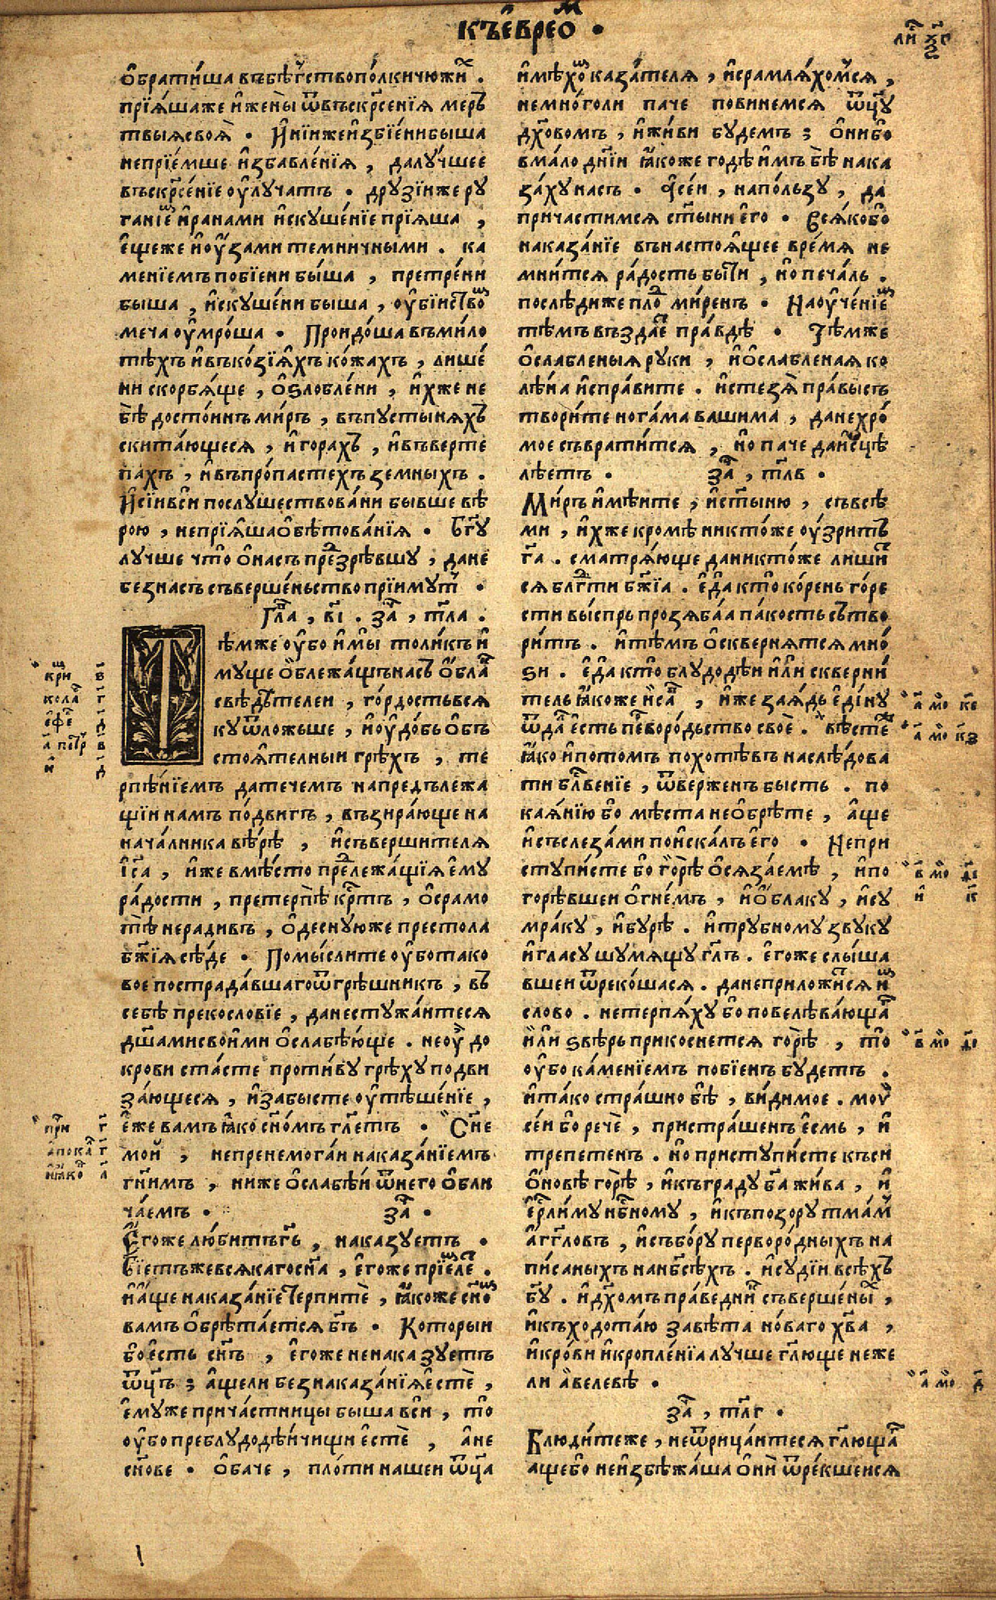 къ еврео м .
ли х г
ѕ
обратиша въбѣгство полки чюжи х .
прїѧша же и жены ѿ въскр҃сенїѧ мерт
твыѧ своѧ . Инїи же избїени быша
непрїемше избавленїѧ , да лучшее
въскр҃сенїе оулучатъ . друзїи же ру
ганїе м и ранами искушенїе прїѧша ,
еще же и оузами темничными . ка
менїемъ побїени быша , претрени
быша , искушени быша , оубїиство м
меча оумроша . Проидоша въ мило
тѣхъ и въ козїѧхъ кожахъ , лише
ни скорбѧще , оѕлоблени , ихже не
бѣ достоинъ миръ , въ пустынѧхъ
скитающесѧ , и горахъ , и въ верте
пахъ , и въ пропастехъ земныхъ .
И сїи вси послушествовани бывше вѣ
рою , не прїѧша обѣтованїѧ . Бг҃у
лучше что о насъ презрѣвшу , да не
без насъ съвершеньство прїимут .
Гла , в҃і . за , тл҃а .
Тѣмже оубо и мы толикъ и
муще облежащь насъ обла к
свѣдѣтелеи , гордость всѧ
ку ѿложьше , и оудобь объ
стоѧтелныи грѣхъ , те
рпѣнїемъ да течемъ на предълежа
щїи намъ подвигъ , възирающе на
началника вѣрѣ , и съвершителѧ
Іс҃а , иже вмѣсто прележащїѧ ему
радости , претерпѣ кр҃тъ , о срамо
тѣ нерадивъ , одесную же престола
бж҃їѧ сѣде . Помыслите оубо тако
вое пострадавшаго ѿ грѣшникъ , въ
себѣ прекословїе , да не стужаитесѧ
дш҃ами своими ослабѣюще . не оу до
крови стасте противу грѣху подви
зающесѧ , и забысте оутѣшенїе ,
еже вамъ ꙗко сн҃омъ гл҃етъ . Сн҃е
мои , не пренемогаи наказанїемъ
гн҃имъ , ниже ослабѣи ѿ него обли
чаемъ . за .
Егоже любитъ гь҃ , наказуетъ .
Бїетъ же всѧкаго сн҃а , егоже прїеле т .
И аще наказанїе терпите , ꙗкоже сн҃о м
вамъ обрѣтаетсѧ бг҃ъ . Которыи
бо есть сн҃ъ , егоже не наказуетъ
ѿц҃ъ ; аще ли без наказанїѧ есте ,
емуже причастницы быша вси , то
оубо преблудодѣйчищи есте , а не
сн҃ове . Обаче , плоти нашеи ѿц҃а
имѣхо м казателѧ , и срамлѧхомсѧ ,
не много ли паче повинемсѧ ѿц҃у
дх҃овомъ , и живи будемъ ; они бо
вмало днїи ꙗкоже годѣ имъ бѣ нака
заху насъ . а сеи , на пользу , да
причастимсѧ ст҃ыни его . Всѧко бо
наказанїе въ настоѧщее времѧ не
мнитсѧ радость быти , но печаль .
послѣди же пло д миренъ . Наоученїе м
тѣмъ въздае т правдѣ . Тѣмже
ослабленыѧ руки , и ослабленаѧ ко
лѣна исправите . и стезѧ правысъ
творите ногама вашима , да не хро
мое съвратитсѧ , но паче да исцѣ
лѣетъ . за , тл҃в .
Миръ имѣите , и ст҃ыню , съ всѣ
ми , ихже кромѣ никтоже оузритъ
га҃ . сматрѧюще да никтоже лиши т
сѧ блг҃ти бж҃їа . еда кто корень горе
сти выспрь прозѧбаа пакость сътво
ритъ . и тѣмъ осквернѧтсѧ мно
ѕи . еда кто блудодѣи или скверни
тель ꙗкоже исав , иже заѧдь едину
ѿда есть первородьство свое . вѣсте
ꙗко и потомъ похотѣвъ наслѣдова
ти бл҃венїе , ѿверженъ бысть . по
каѧнїю бо мѣста не обрѣте , аще
и съ слезами поискалъ его . Непри
ступисте бо горѣ осѧзаемѣ , и по
горѣвшеи огнемъ , и облаку , и су
мраку , и бурѣ . и трубному звуку
и гласу шумѧщу гл҃ъ . егоже слыша
вшеи ѿрекошасѧ . да не приложисѧ и м
слово . не терпѧху бо повелѣвающа
или ѕвѣрь прикоснетсѧ горѣ , то
оубо каменїемъ побїенъ будетъ .
и тако страшно бѣ , видимое . моу
сеи бо рече , пристрашенъ есмь , и
трепетенъ . но приступисте къ си
оновѣ горѣ , и къ граду ба҃ жива , и
ерл҃иму нб҃ному , и къ позору тмам
агг҃ловъ , и сьбору первородныхъ на
писаныхъ на нб҃сѣхъ . и судїи всѣхъ
бу҃ . и дх҃омъ праведни к съвершены х ,
и къ ходотаю завѣта новаго хв҃а ,
и крови и кропленїа лучше гл҃юще неже
ли авелевѣ .
за , тл҃г .
Блюдите же , не ѿрицаитесѧ гл҃юща
аще бо не избѣжаша они ѿрекшеисѧ